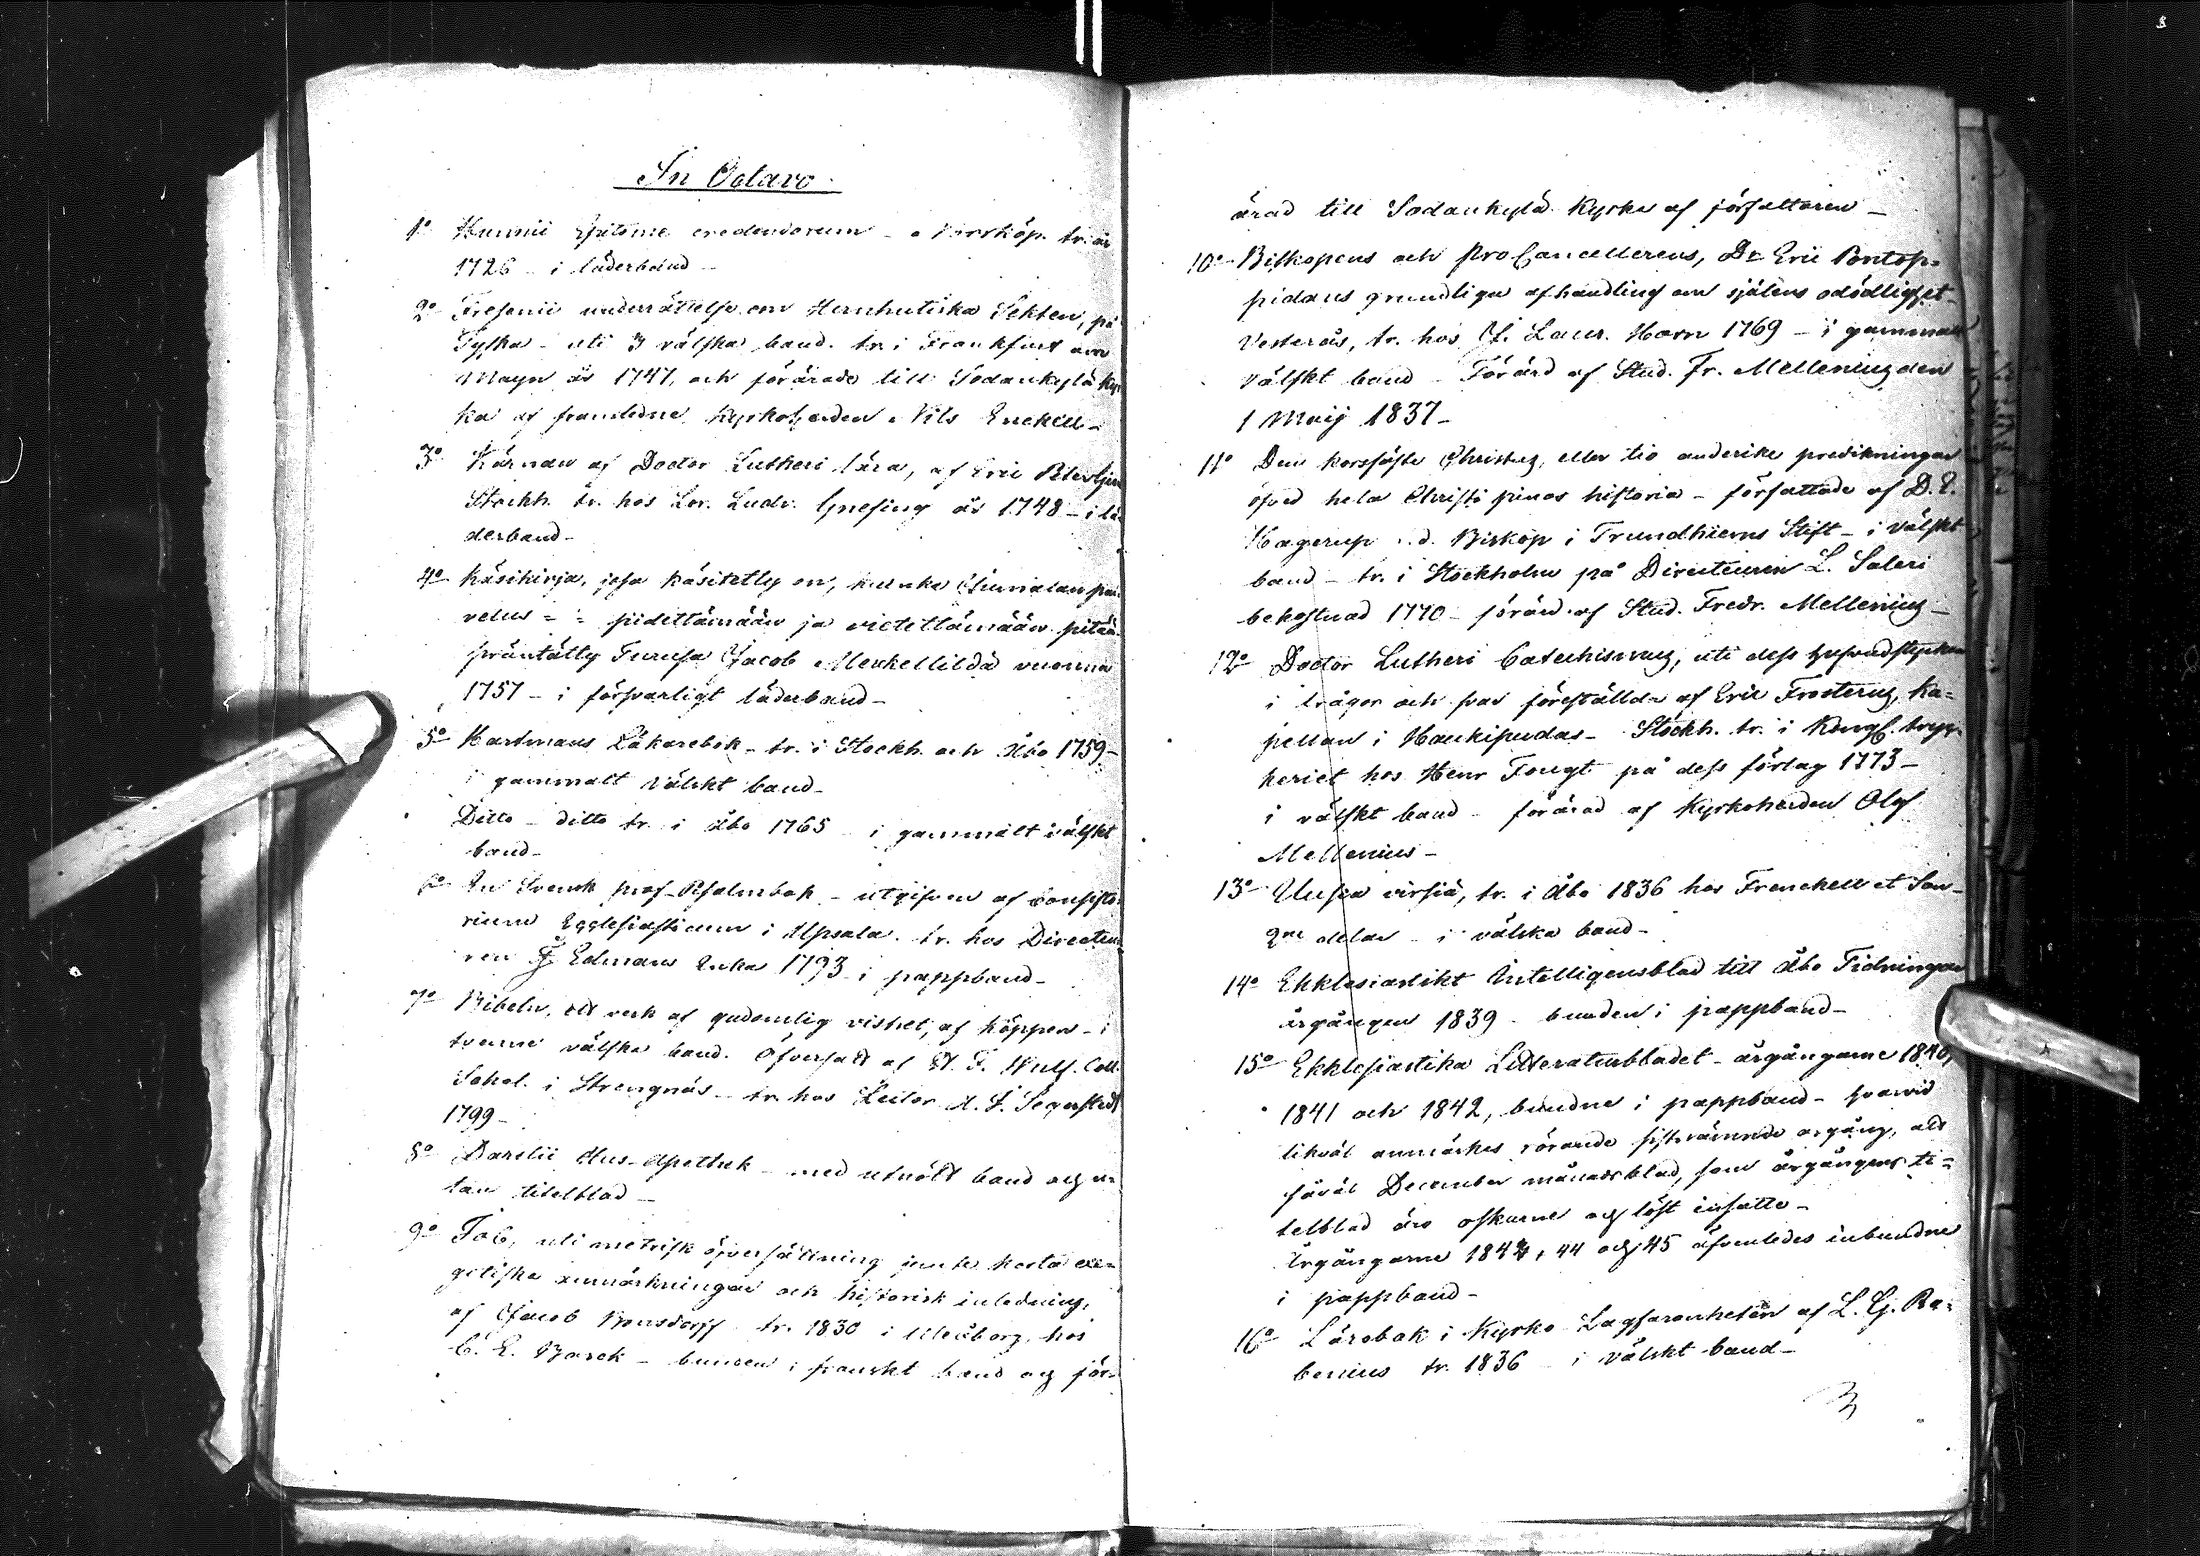 In Octavo
1º Hunnii Epitome credendorum - Norrköp. tr. år
1726 - i läderband -
2º Fresenii underrättelse om Hernhutiska Sekten, på
Tyska - uti 3 välska band. tr. i Frankfurt am
Mayn år 1747, och förärade till Sodankylä Kyr
ka af framledne Kyrkoherden Nils Enckell -
3º Kärnan af Doctor Lutheri lära, af Eric
Stockh. tr. hos Lor. Ludv. Grefing år 1748 - i lä
derband -
4º Käsikirja, josa käsitetty on, kuinka Jumalan pal
velus = = pidettämään ja
präntätty Turusa Jacob Merkellildä vuonna
1757 - i försvarligt läderband -
5º Hartmans Läkarebok - tr. i Stockh. och Åbo 1759 -
i gammalt välskt band -
Ditto - ditto tr. i Åbo 1765 - i gammalt välskt
band -
6º En Svensk prof-Psalmbok - utgifven af Consisto
rium Ecclesiasticum i Upsala. tr. hos Directeu
ren J. Edmans Enka 1793 - i pappband -
7º Bibeln, ett verk af gudomlig vishet, af Köppen - i
tvenne välska band. Öfversatt af F. Wulf. Coll.
Schol. i Strengnäs - tr. hos Lector A. J. Segerstedt
1799 -
8º Darelii Hus-Apothek - med utnött band och u-
tan titelblad -
9º Job, uti metrisk öfversättning jemte korta exe-
getiska anmärkningar och historisk inledning,
af Jacob Bonsdorff tr. 1830 i Uleåborg, hos
C. E. Barck - bunden i franskt band och för-
ärad till Sodankylä Kyrka af författaren -
10º Biskopens och ProCancellerens, Dr Eric Pontop-
pidans grundliga afhandling om själens odödlighet -
Vesterås, tr. hos J. Laur. Horn 1769 - i gammalt
välskt band - Förärd af Stud. Fr. Mellenius den
1 Maij 1837 -
11º Den korsfäste Christus, eller tio anderika predikningar
öfver hela Christi pinos historia - författade af D. E.
Hagerup . d. Biskop i Trundhiems Stift - i välskt
band - tr. i Stockholm på Directeuren L. Salvii
bekostnad 1770 - förärd af Stud. Fredr. Mellenius -
12º Doctor Lutheri Catechismus, uti dess hufvudstycken
i frågor och svar föreställd af Eric Frosterus, Ka-
pellan i Haukipudas - Stockh. tr. i Kongl. tryc-
keriet hos Henr Fougt på dess förlag 1773 -
i välskt band - förärad af Kyrkoherden Olof
Mellenius -
13º Uusia virsiä, tr. i Åbo 1836 hos Frenckell et Son -
2ne delar - i välska band -
14º Ekklesiastikt Intelligensblad till Åbo Tidningar
årgången 1839 - bunden i pappband -
15º Ekklesiastika Litteraturbladet - årgångarne 1840,
1841 och 1842, bundne i pappband - hvarvid
likväl anmärkes rörande sistnämnde årgång, att
såväl December månadsblad, som årgångens ti-
telblad äro oskurne och löst insatte -
Årgångarne 1843, 44 och 45 äfvenledes inbundne
i pappband -
16º Lärobok i Kyrko Lagfarenheten af L. G. Ra-
benius tr. 1836 - i välskt band -